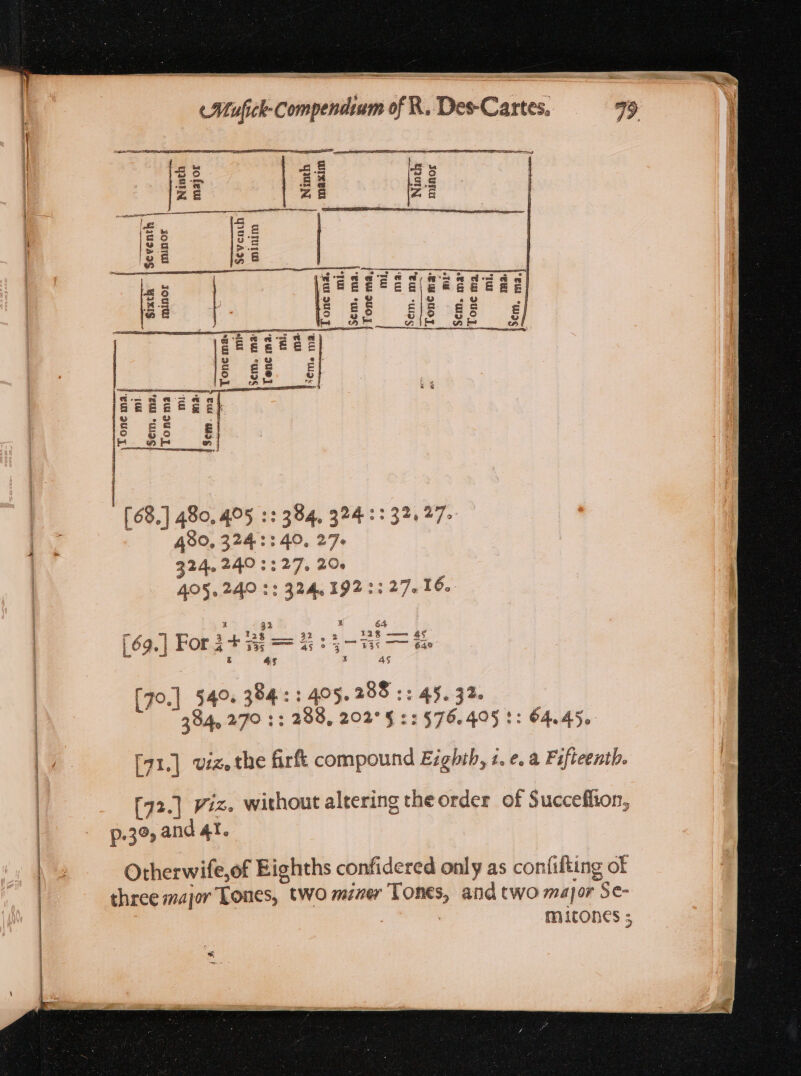 Muſick-Compendium of R. Des-Cartes. 79
Ninth
major
Ninth
maxim
Ninth
minor
Seaventh
minor
Seventh
minim
Sixth
minor
Tone ma,
mi.
Sem. ma.
Tone ma,
mi,
ma
Sem. ma,
Tone ma
mi
Sem. ma
Tone ma,
mi.
ma.
Sem. ma,
Tone ma
mi
Sem. ma
Tone ma,
mi,
ma
Sem. ma
Tone ma.
mi
Sem. ma,
Tone ma
mi
ma
Sem ma
[68.] 480, 405 :: 384, 324 :: 32, 27.
480, 324 :: 40, 27.
324, 240 :: 27, 20.
405. 240 :: 324, 192 :: 27. 16.
1 32 1 64
[69.] For 3/4 + 128/135 = 32/45 : 2/3 — 128/135 = 45/640
1 45
[70.] 540. 384 :: 405. 288 :: 45. 32.
384, 270 :: 288, 202° 5 :: 576. 405 :: 64. 45.
[71.] viz. the firſt compound Eighth, i. e. a Fifteenth.
[72.] Viz. without altering the order of Succeſſion,
p. 39, and 41.
Otherwiſe, of Eighths conſidered only as conſiſting of
three major Tones, two miner Tones, and two major Se-
mitones ;